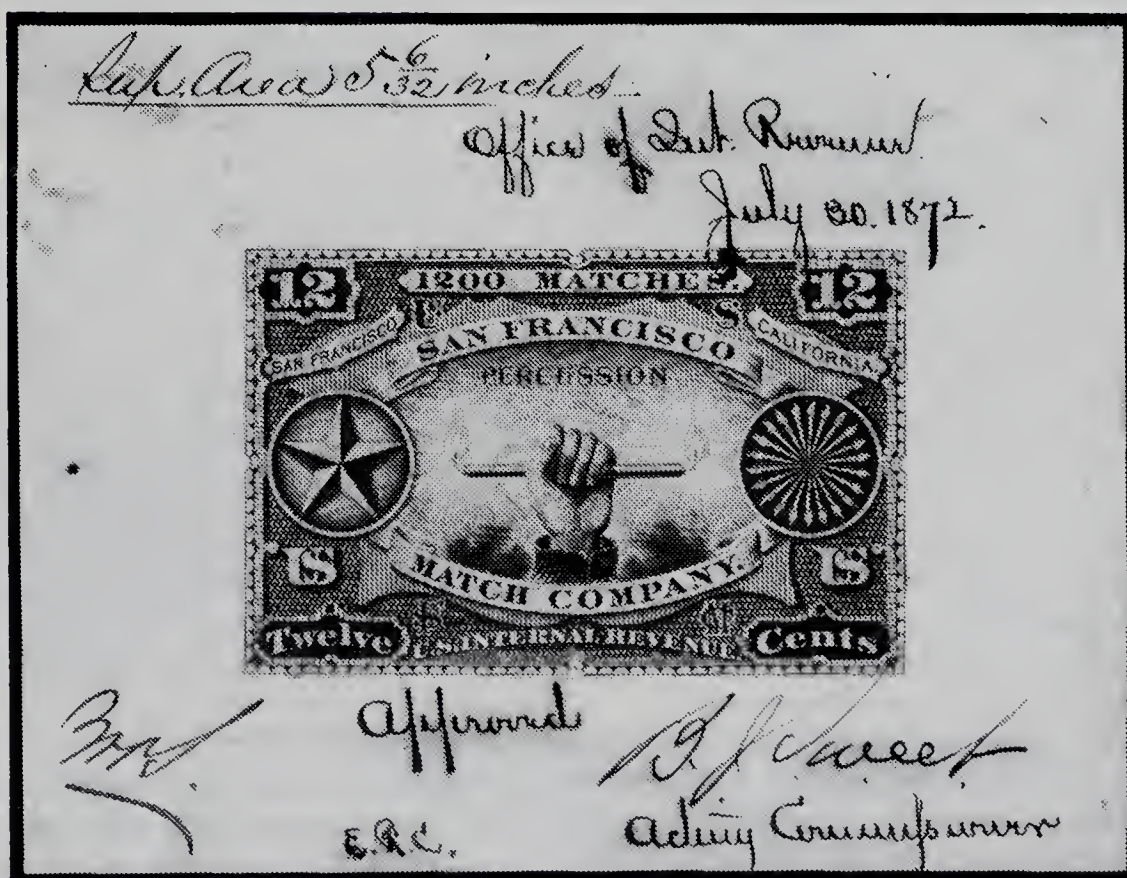 Sup. Area 5 6/32 inches
Office of Int. Revenue
July 30. 1872.
12 1200 MATCHES. 12
U S
SAN FRANCISCO SAN FRANCISCO CALIFORNIA
PERCUSSION
MATCH COMPANY.
Twelve U.S. INTERNAL REVENUE Cents
Approved
B. J. Sweet
E.R.C.
Acting Commissioner